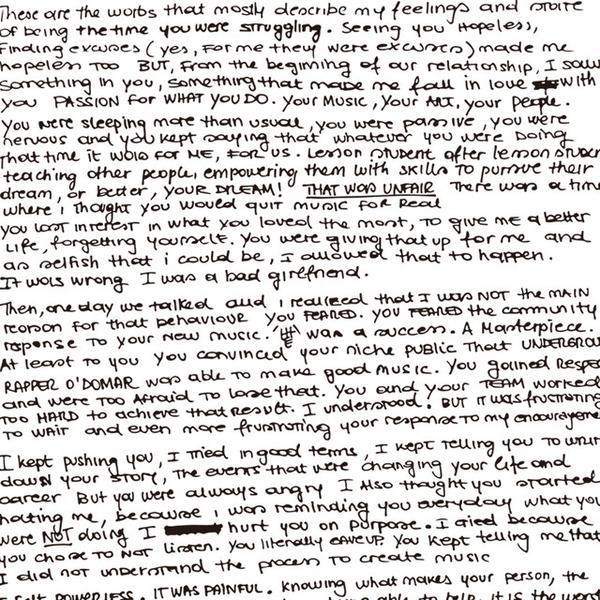 These are the words that mostly describe my feelings and state
of being the time you were struggling. Seeing you hopeless,
finding excuses (yes, for me they were excuses) made me
hopeless too BUT, from the beginning of our relationship, I saw
something in you, something that made me fall in love with
you PASSION for WHAT YOU DO. Your MUSIC, your ART, your people.
You were sleeping more than usual, you were passive, you were
nervous and you kept saying that whatever you were doing
that time it was for ME, for US. Lesson student after lesson student
teaching other people, empowering them with skills to pursue their
dream, or better, YOUR DREAM! THAT WAS UNFAIR There was a time
where I thought you would quit music for real
you lost interest in what you loved the most, to give me a better
life, forgetting yourself. You were giving that up for me and
as selfish that i could be, I allowed that to happen.
It was wrong I was a bad girlfriend.
Then, one day we talked and I realized that I was NOT the MAIN
reason for that behaviour you FEARED. you FEARED the community
response to your new music. was a success. A Masterpiece.
At least to you you convinced your niche public that UNDERGROUND
RAPPER O'DOMAR was able to make good music. You gained Respect
and were too Afraid to lose that. You and your TEAM worked
too HARD to achieve that Result. I understood. BUT it was frustrating
to WAIT and even more frustrating your response to my encouragement
I kept pushing you, I tried in good terms, I kept telling you to write
down your STORY, The events that were changing your life and
career But you were always angry I Also thought you started
hating me, because i was reminding you everyday what you
were NOT doing I hurt you on purpose. I cried because
you chose to NOT listen. You literally GAVE UP. You kept telling me that
I did not understand the process to create music
I felt POWERLESS. IT WAS PAINFUL. Knowing what makes your person, the
being able to help, it is the worst